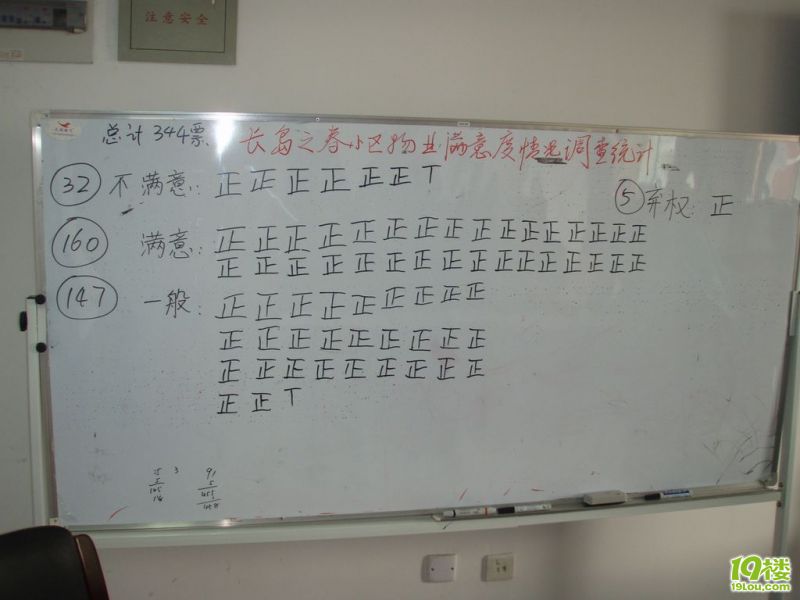 注意安全
总计344票 长岛之春小区物业满意度情况调查统计
32 不满意: 正正正正正正丅
5 弃权: 正
160 满意: 正正正正正正正正正正正正正正正正
正正正正正正正正正正正正正正正正
147 一般: 正正正正正正正正正
正正正正正正正正正
正正正正正正正正正
正正丅
19楼
19lou.com